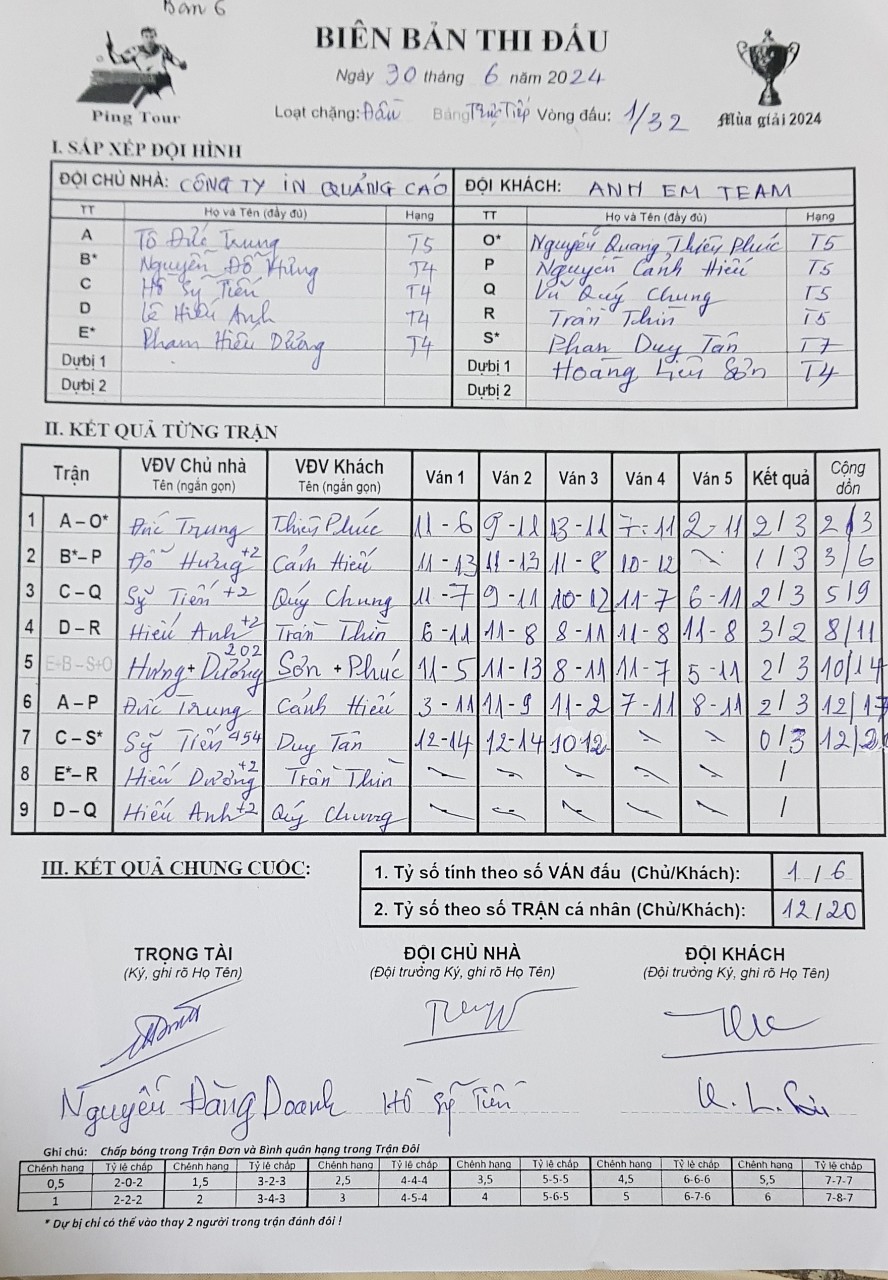 Bàn 6
BIÊN BẢN THI ĐẤU
Ngày 30 tháng 6 năm 2024
Ping Tour
Loại chặng: Đấu Bảng Trực Tiếp Vòng đấu: 1/32
Mùa giải 2024
I. SẮP XẾP ĐỘI HÌNH
ĐỘI CHỦ NHÀ: CÔNG TY IN QUẢNG CÁO ĐỘI KHÁCH: ANH EM TEAM
TT Họ và Tên (đầy đủ) Hạng TT Họ và Tên (đầy đủ) Hạng
A Tô Đức Trung T5 O* Nguyễn Quang Thiên Phúc T5
B* Nguyễn Đỗ Hưng T4 P Nguyễn Cảnh Hiếu T5
C Hồ Sỹ Tiến T4 Q Vũ Quý Chung T5
D Lê Hiếu Anh T4 R Trần Thìn T5
E* Phạm Hiếu Dưỡng T4 S* Phan Duy Tân T7
Dự bị 1 Dự bị 1 Hoàng Liên Sơn T4
Dự bị 2 Dự bị 2
II. KẾT QUẢ TỪNG TRẬN
Trận VĐV Chủ nhà Tên (ngắn gọn) VĐV Khách Tên (ngắn gọn) Ván 1 Ván 2 Ván 3 Ván 4 Ván 5 Kết quả Cộng dồn
1 A – O* Đức Trung Thiên Phúc 11-6 9-11 13-11 7-11 2-11 2/3 2/3
2 B* – P Đỗ Hưng +2 Cảnh Hiếu 11-13 11-13 11-8 10-12 1/3 3/6
3 C – Q Sỹ Tiến +2 Quý Chung 11-7 9-11 10-12 11-7 6-11 2/3 5/9
4 D – R Hiếu Anh +2 Trần Thìn 6-11 11-8 8-11 11-8 11-8 3/2 8/11
5 E+B – S+O Hưng + Dưỡng 202 Sơn + Phúc 11-5 11-13 8-11 11-7 5-11 2/3 10/14
6 A – P Đức Trung Cảnh Hiếu 3-11 11-9 11-2 7-11 8-11 2/3 12/17
7 C – S* Sỹ Tiến 454 Duy Tân 12-14 12-14 10 12 0/3 12/20
8 E* – R Hiếu Dưỡng +2 Trần Thìn /
9 D – Q Hiếu Anh +2 Quý Chung /
III. KẾT QUẢ CHUNG CUỘC:
1. Tỷ số tính theo số VÁN đấu (Chủ/Khách): 1 / 6
2. Tỷ số theo số TRẬN cá nhân (Chủ/Khách): 12/20
TRỌNG TÀI ĐỘI CHỦ NHÀ ĐỘI KHÁCH
(Ký, ghi rõ Họ Tên) (Đội trưởng Ký, ghi rõ Họ Tên) (Đội trưởng Ký, ghi rõ Họ Tên)
Nguyễn Đăng Doanh Hồ Sỹ Tiến H. L. Sơn
Ghi chú: Chấp bóng trong Trận Đơn và Bình quân hạng trong Trận Đôi
Chênh hạng Tỷ lệ chấp Chênh hạng Tỷ lệ chấp Chênh hạng Tỷ lệ chấp Chênh hạng Tỷ lệ chấp Chênh hạng Tỷ lệ chấp Chênh hạng Tỷ lệ chấp
0,5 2-0-2 1,5 3-2-3 2,5 4-4-4 3,5 5-5-5 4,5 6-6-6 5,5 7-7-7
1 2-2-2 2 3-4-3 3 4-5-4 4 5-6-5 5 6-7-6 6 7-8-7
* Dự bị chỉ có thể vào thay 2 người trong trận đánh đôi !